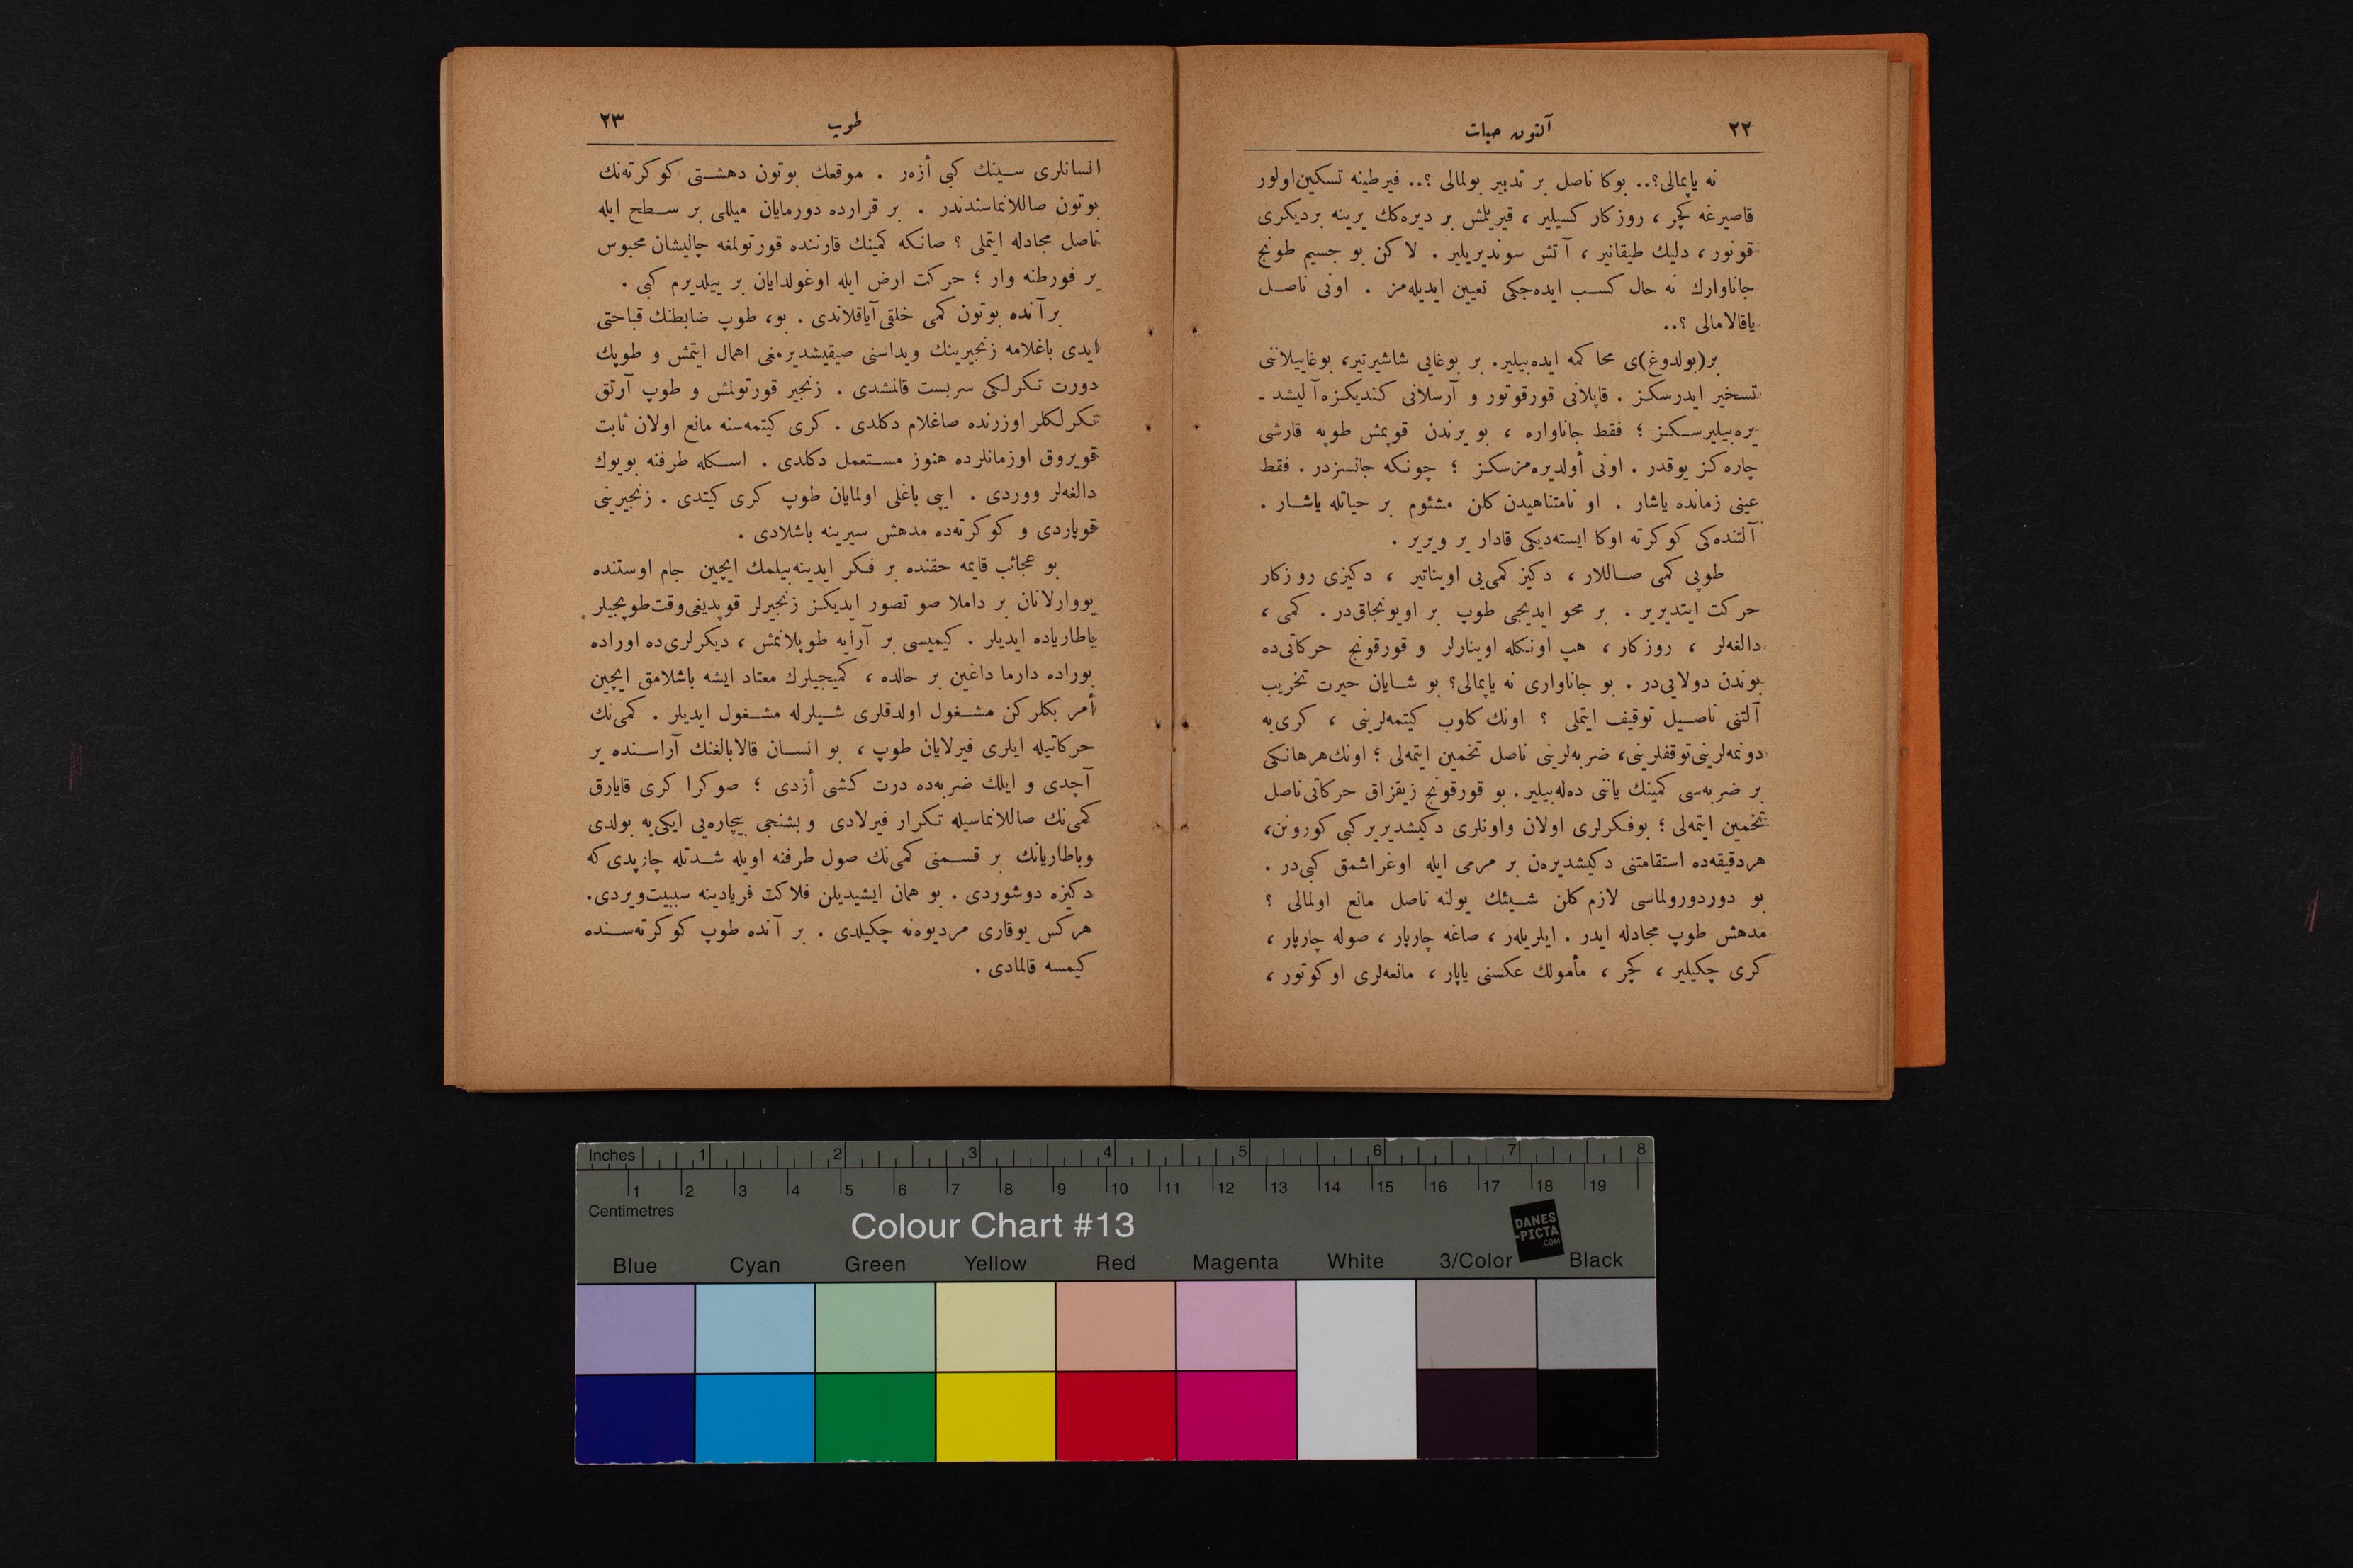 ٢٢
آلتون حيات
نه ياپمالی؟.. بوكا ناصل بر تدبير بولمالی ؟.. فيرطينه تسكين‌اولور
قاصيرغه كچر ، روزكار كسيلير ، قيريلمش بر ديره‌كك يرينه برديكری
قونور ، دليك طيقانير ، آتش سونديريلير . لاكن بو جسيم طونج
جاناوارك نه حال كسب ايده‌جكی تعيين ايديله‌مز . اونی ناصل
ياقالامالی ؟..
بر(بولدوغ)ی محاكمه ايده‌بيلير. بر بوغايی شاشيرتير، بوغاييلاننی
تسخير ايدرسكز . قاپلانی قورقوتور و آرسلانی كنديكزه آليشد ـ
يره‌بيليرسكز ؛ فقط جاناواره ، بو يرندن قوپمش طوپه قارشی
چاره‌كز يوقدر . اونی أولديره‌مزسكز ؛ چونكه جانسزدر . فقط
عينی زمانده ياشار . او نامتناهيدن كلن مشئوم بر حياتله ياشار .
آلتنده‌كی كوكرته اوكا ايسته‌ديكی قادار ير ويرير .
طوپی كمی صاللار ، دكيز كمی‌يی اويناتير ، دكيزی روزكار
حركت ايتديرير . بر محو ايديجی طوپ بر اويونجاق‌در . كمی ،
دالغه‌لر ، روزكار ، هپ اونكله اوينارلر و قورقونج حركاتی‌ده
بوندن دولايی‌در . بو جاناواری نه ياپمالی؟ بو شايان حيرت تخريب
آلتنی ناصيل توقيف ايتملی ؟ اونك كلوب كيتمه‌لرينی ، كری‌يه
دونمه‌لرينی‌توقفلرينی، ضربه‌لرينی ناصل تخمين ايتمه‌لی ؛ اونك‌هرهانكی
بر ضربه‌سی كمينك ياننی ده‌له‌بيلير. بو قورقونج زيقزاق حركاتی‌ناصل
تخمين ايتمه‌لی ؛ بوفكرلری اولان واونلری دكيشديريركبی كورونن،
هردقيقه‌ده استقامتنی دكيشديره‌ن بر مرمی ايله اوغراشمق كبی‌در .
بو دوردورولماسی لازم كلن شيئك يولنه ناصل مانع اولمالی ؟
مدهش طوپ مجادله ايدر . ايلريله‌ر ، صاغه چارپار ، صوله چارپار ،
كری چكيلير ، كچر ، مأمولك عكسنی ياپار ، مانعه‌لری اوكوتور ،
طوپ
٢٣
انسانلری سينك كبی أزه‌ر . موقعك بوتون دهشتی كوكرته‌نك
بوتون صاللانماسندندر . بر قرارده دورمايان ميللی بر سطح ايله
ناصل مجادله ايتملی ؟ صانكه كمينك قارننده قورتولمغه چاليشان محبوس
بر فورطنه وار ؛ حركت ارض ايله اوغولدايان بر ييلديرم كبی .
برآنده بوتون كمی خلقی‌آياقلاندی . بو، طوپ ضابطنك قباحتی
ايدی باغلامه زنجيرينك ويداسنی صيقيشديرمغی اهمال ايتمش و طوپك
دورت تكرلكی سربست قالمشدی . زنجير قورتولمش و طوپ آرتق
تكرلكلر اوزرنده صاغلام دكلدی . كری كيتمه‌سنه مانع اولان ثابت
قويروق اوزمانلرده هنوز مستعمل دكلدی . اسكله طرفنه بويوك
دالغه‌لر ووردی . ايپی باغلی اولمايان طوپ كری كيتدی . زنجيرينی
قوپاردی و كوكرته‌ده مدهش سيرينه باشلادی .
بو عجائب قايمه حقنده بر فكر ايدينه‌بيلمك ايچين جام اوستنده
يووارلانان بر داملا صو تصور ايديكز زنجيرلر قوپديغی‌وقت‌طوپجيلر
باطارياده ايديلر . كيميسی بر آرايه طوپلانمش ، ديكرلری‌ده اوراده
بوراده دارما داغين بر حالده ، كميجيلرك معتاد ايشه باشلامق ايچين
أمر بكلركن مشغول اولدقلری شيلرله مشغول ايديلر . كمی‌نك
حركاتيله ايلری فيرلايان طوپ ، بو انسان قالابالغنك آراسنده ير
آچدی و ايلك ضربه‌ده درت كشی أزدی ؛ صوكرا كری قايارق
كمی‌نك صاللانماسيله تكرار فيرلادی وبشنجی بيچاره‌يی ايكی‌يه بولدی
وباطاريانك بر قسمنی كمی‌نك صول طرفنه اويله شدتله چارپدی‌كه
دكيزه دوشوردی . بو همان ايشيديلن فلاكت فريادينه سببيت‌ويردی.
هركس يوقاری مرديوه‌نه چكيلدی . بر آنده طوپ كوكرته‌سنده
كيمسه قالمادی .
Inches 1 2 3 4 5 6 7 8
1 2 3 4 5 6 7 8 9 10 11 12 13 14 15 16 17 18 19
Centimetres
Colour Chart #13
DANES
-PICTA
.COM
Blue Cyan Green Yellow Red Magenta White 3/Color Black